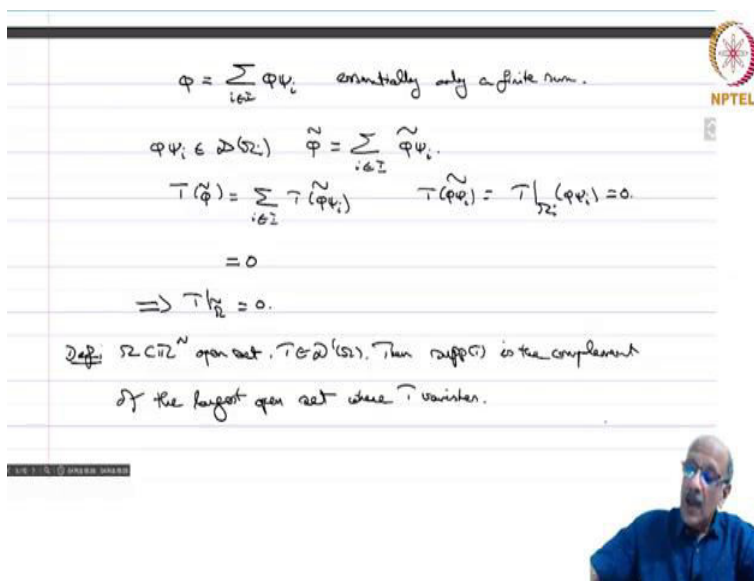 φ = Σ_{i∈I} φψ_i essentially only a finite sum.
NPTEL
φψ_i ∈ D(Ω_i) φ̃ = Σ_{i∈I} φ̃ψ_i.
T(φ̃) = Σ_{i∈I} T(φ̃ψ_i) T(φ̃ψ_i) = T|_{Ω_i}(φψ_i) = 0.
= 0
⟹ T|_{Ω̃} = 0.
Def: Ω ⊂ ℝ^N open set, T ∈ D'(Ω). Then supp(T) is the complement
of the largest open set where T vanishes.